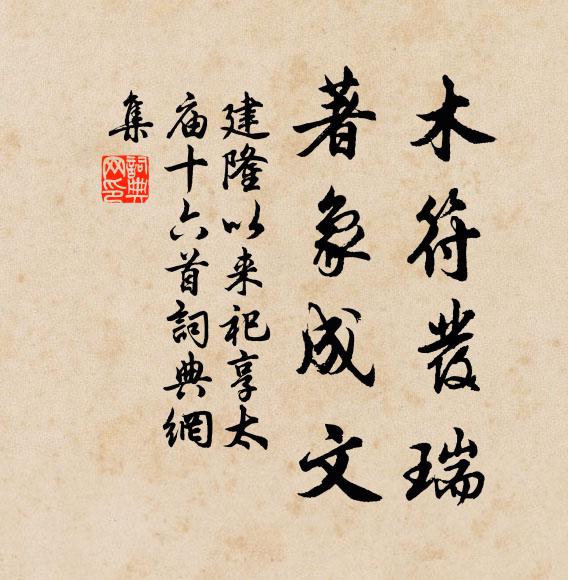 木符發瑞
著象成文
建隆以来祀享太
庙十六首詞典網
集
詞典
网印